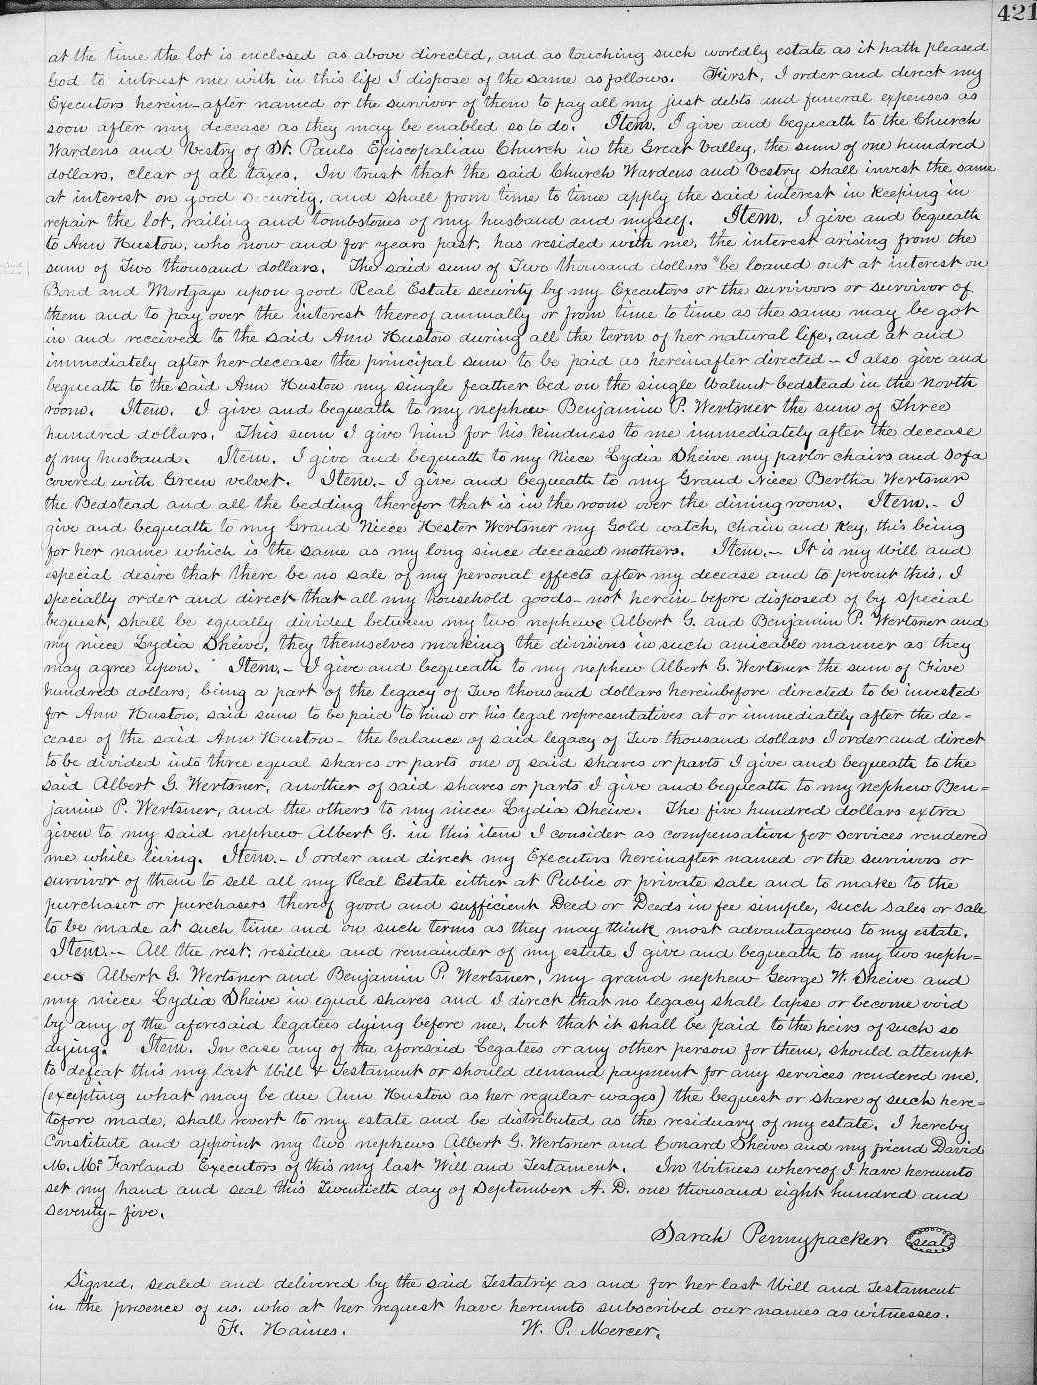 421
at the time the lot is enclosed as above directed, and as touching such worldly estate as it hath pleased
God to intrust me with in this life I dispose of the same as follows. First, I order and direct my
Executors herein-after named or the survivor of them to pay all my just debts and funeral expenses as
soon after my decease as they may be enabled so to do. Item. I give and bequeath to the Church
Wardens and Vestry of St. Pauls Episcopalian Church in the Great Valley, the sum of one hundred
dollars, clear of all taxes. In trust that the said Church Wardens and Vestry shall invest the same
at interest on good security, and shall from time to time apply the said interest in keeping in
repair the lot, railing and tombstones of my husband and myself. Item. I give and bequeath
to Ann Huston, who now and for years past, has resided with me, the interest arising from the
sum of Two thousand dollars. The said sum of Two thousand dollars to be loaned out at interest on
Bond and Mortgage upon good Real Estate security by my Executors or the survivors or survivor of
them and to pay over the interest thereof annually or from time to time as the same may be got
in and received to the said Ann Huston during all the term of her natural life, and at and
immediately after her decease the principal sum to be paid as hereinafter directed - I also give and
bequeath to the said Ann Huston my single feather bed on the single Walnut bedstead in the North
room. Item. I give and bequeath to my nephew Benjamin P. Wertsner the sum of Three
hundred dollars. This sum I give him for his kindness to me immediately after the decease
of my husband. Item. I give and bequeath to my Niece Lydia Sheive my parlor chairs and Sofa
covered with Green velvet. Item.- I give and bequeath to my Grand Niece Bertha Wertsner
the Bedstead and all the bedding therefor that is in the room over the dining room. Item.- I
give and bequeath to my Grand Niece Hester Wertsner my Gold watch, Chain and Key, this being
for her name which is the same as my long since deceased mothers. Item.- It is my Will and
especial desire that there be no sale of my personal effects after my decease and to prevent this, I
specially order and direct that all my household goods- not herein-before disposed of by special
bequest, shall be equally divided between my two nephews Albert G. and Benjamin P. Wertsner and
my niece Lydia Sheive, they themselves making the divisions in such amicable manner as they
may agree upon. Item.- I give and bequeath to my nephew Albert G. Wertsner the sum of Five
hundred dollars, being a part of the legacy of Two thousand dollars hereinbefore directed to be invested
for Ann Huston, said sum to be paid to him or his legal representatives at or immediately after the de=
cease of the said Ann Huston - the balance of said legacy of Two thousand dollars I order and direct
to be divided into three equal shares or parts one of said shares or parts I give and bequeath to the
said Albert G. Wertsner, another of said shares or parts I give and bequeath to my nephew Ben=
jamin P. Wertsner, and the others to my niece Lydia Sheive. The five hundred dollars extra
given to my said nephew Albert G. in this item I consider as compensation for services rendered
me while living. Item.- I order and direct my Executors hereinafter named or the survivors or
survivor of them to sell all my Real Estate either at Public or private sale and to make to the
purchaser or purchasers thereof good and sufficient Deed or Deeds in fee simple, such sales or sale
to be made at such time and on such terms as they may think most advantageous to my estate.
Item.- All the rest, residue and remainder of my estate I give and bequeath to my two neph=
ews Albert G. Wertsner and Benjamin P. Wertsner, my grand nephew George W. Sheive and
my niece Lydia Sheive in equal shares and I direct that no legacy shall lapse or become void
by any of the aforesaid legatees dying before me, but that it shall be paid to the heirs of such so
dying. Item. In case any of the aforesaid Legatees or any other person for them, should attempt
to defeat this my last Will & Testament or should demand payment for any services rendered me,
(excepting what may be due Ann Huston as her regular wages) the bequest or share of such here=
tofore made, shall revert to my estate and be distributed as the residuary of my estate. I hereby
Constitute and appoint my two nephews Albert G. Wertsner and Conard Sheive and my friend David
M. McFarland Executors of this my last Will and Testament. In Witness whereof I have hereunto
set my hand and seal this Twentieth day of September A.D. one thousand eight hundred and
seventy-five.
Sarah Pennypacker seal
Signed, sealed and delivered by the said Testatrix as and for her last Will and Testament
in the presence of us, who at her request have hereunto subscribed our names as witnesses.
F. Haines. W. P. Mercer.